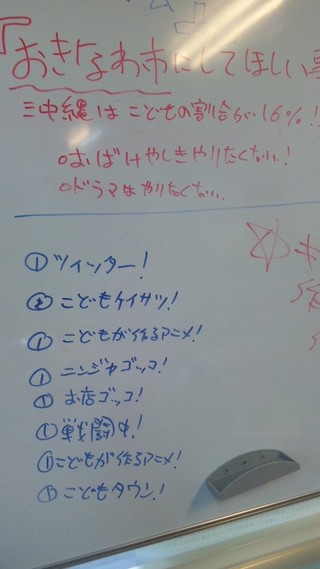 『おきなわ市にしてほしい事
沖縄はこどもの割合が16%!
○おばけやしきやりたくない!
○ドラマはやりたくない
① ツイッター!
② こどもケイサツ!
① こどもが作るアニメ!
① ニンジャゴッコ!
① お店ゴッコ!
① 戦闘中!
① こどもが作るアニメ!
① こどもタウン!